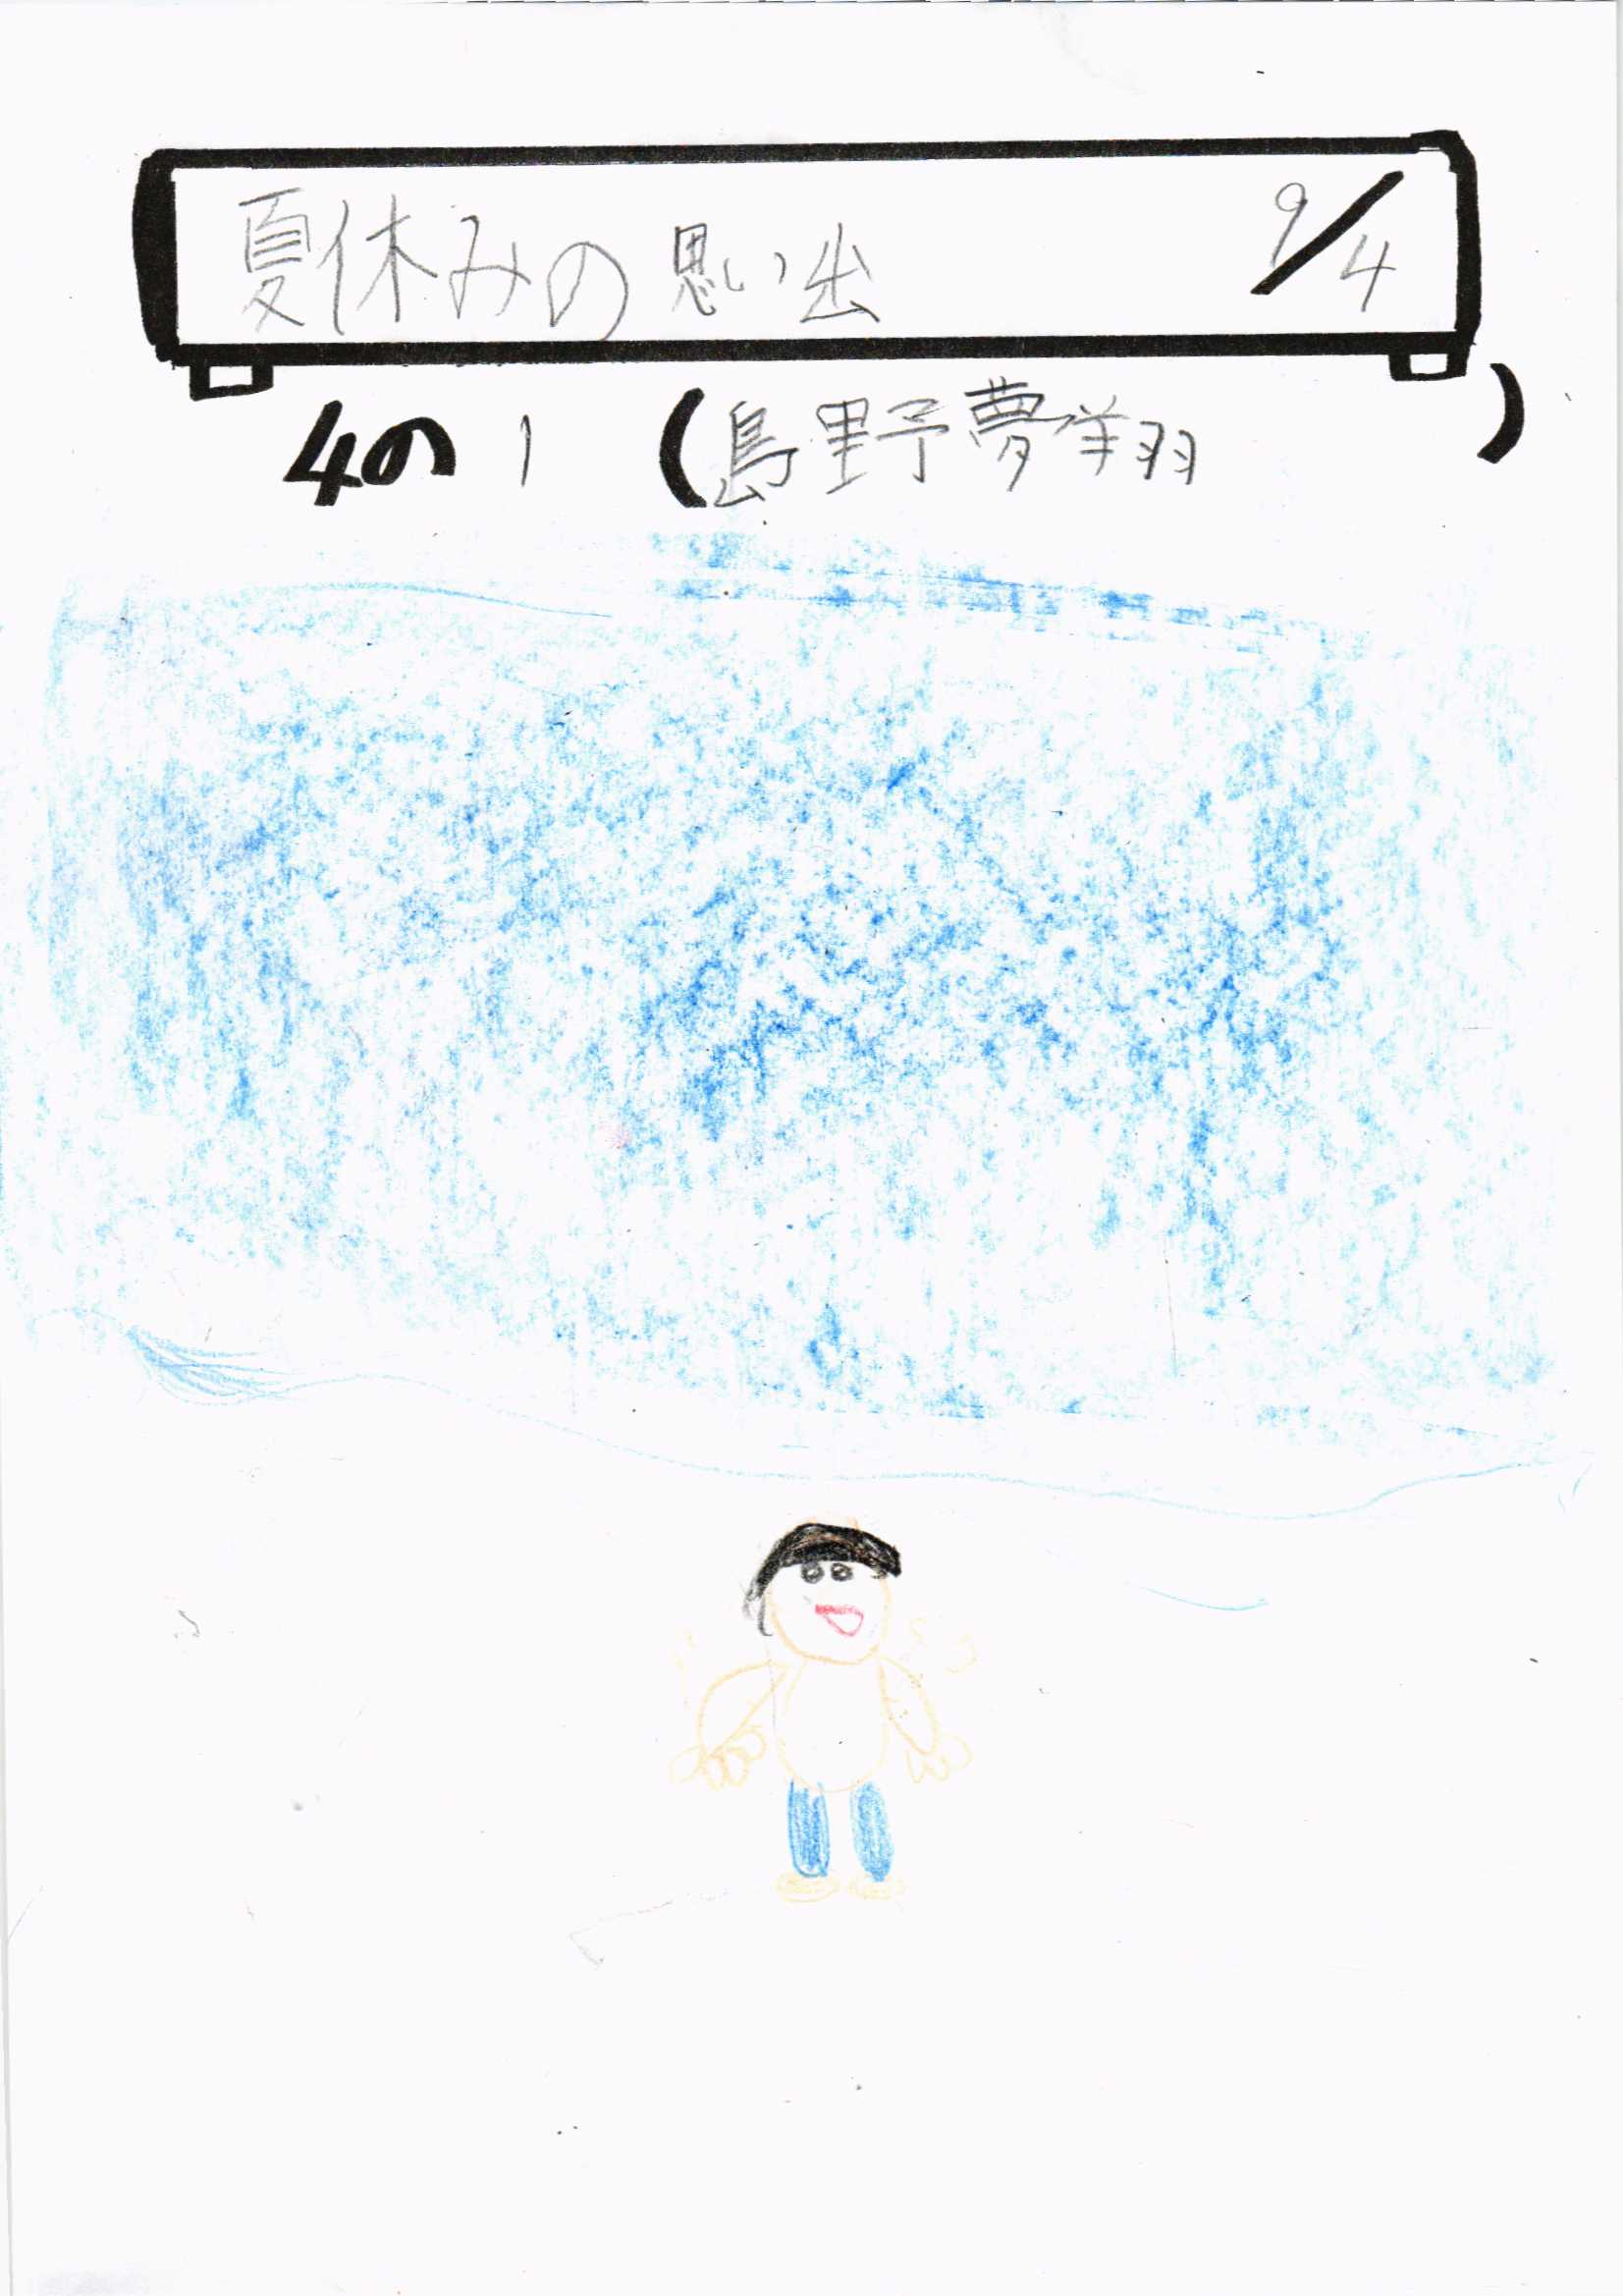 夏休みの思い出 9/4
4の1 (島野夢翔)